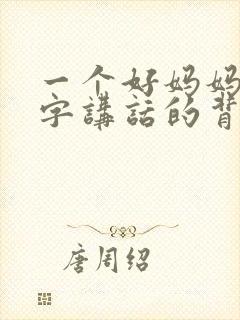 一个好妈妈
字講話的背
唐周绍